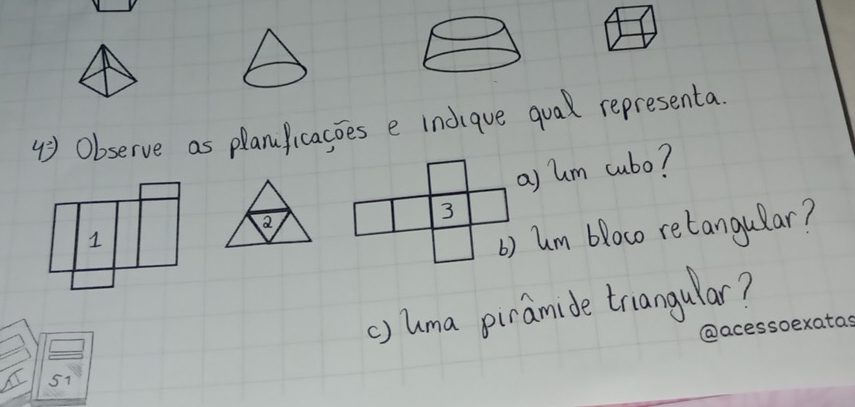 4º) Observe as planificações e indique qual representa.
1
2
3
a) Um cubo?
b) Um bloco retangular?
c) Uma pirâmide triangular?
@acessoexatas
51